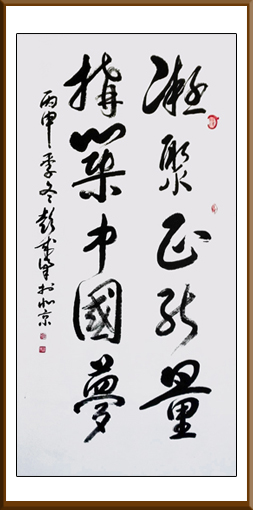 凝聚正能量
搆築中國夢
丙申季冬彭
於北京